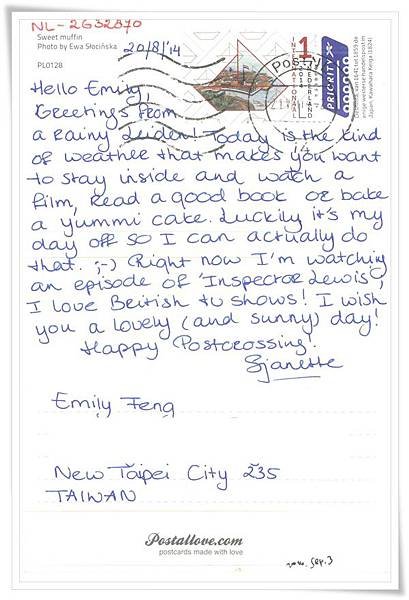 NL-2632870
Sweet muffin
Photo by Ewa Słocińska
20/8/'14
PL0128
1
INTERNATIONAL
NEDERLAND
2014
PRIORITY
Deshima, van 1641 tot 1859 de
enige westerse handelspost in
Japan, Kawahara Keiga (1824)
Hello Emily,
Greetings from
a Rainy Leiden! Today is the kind
of weather that makes you want
to stay inside and watch a
film, Read a good book or bake
a yummi cake. Luckily it's my
day off so I can actually do
that. ;-) Right now I'm watching
an episode of 'Inspector Lewis',
I love British tv shows! I wish
you a lovely (and sunny) day!
Happy Postcrossing!
Sjanette
Emily Feng
New Taipei City 235
TAIWAN
Postallove.com
postcards made with love
2014. Sep. 3